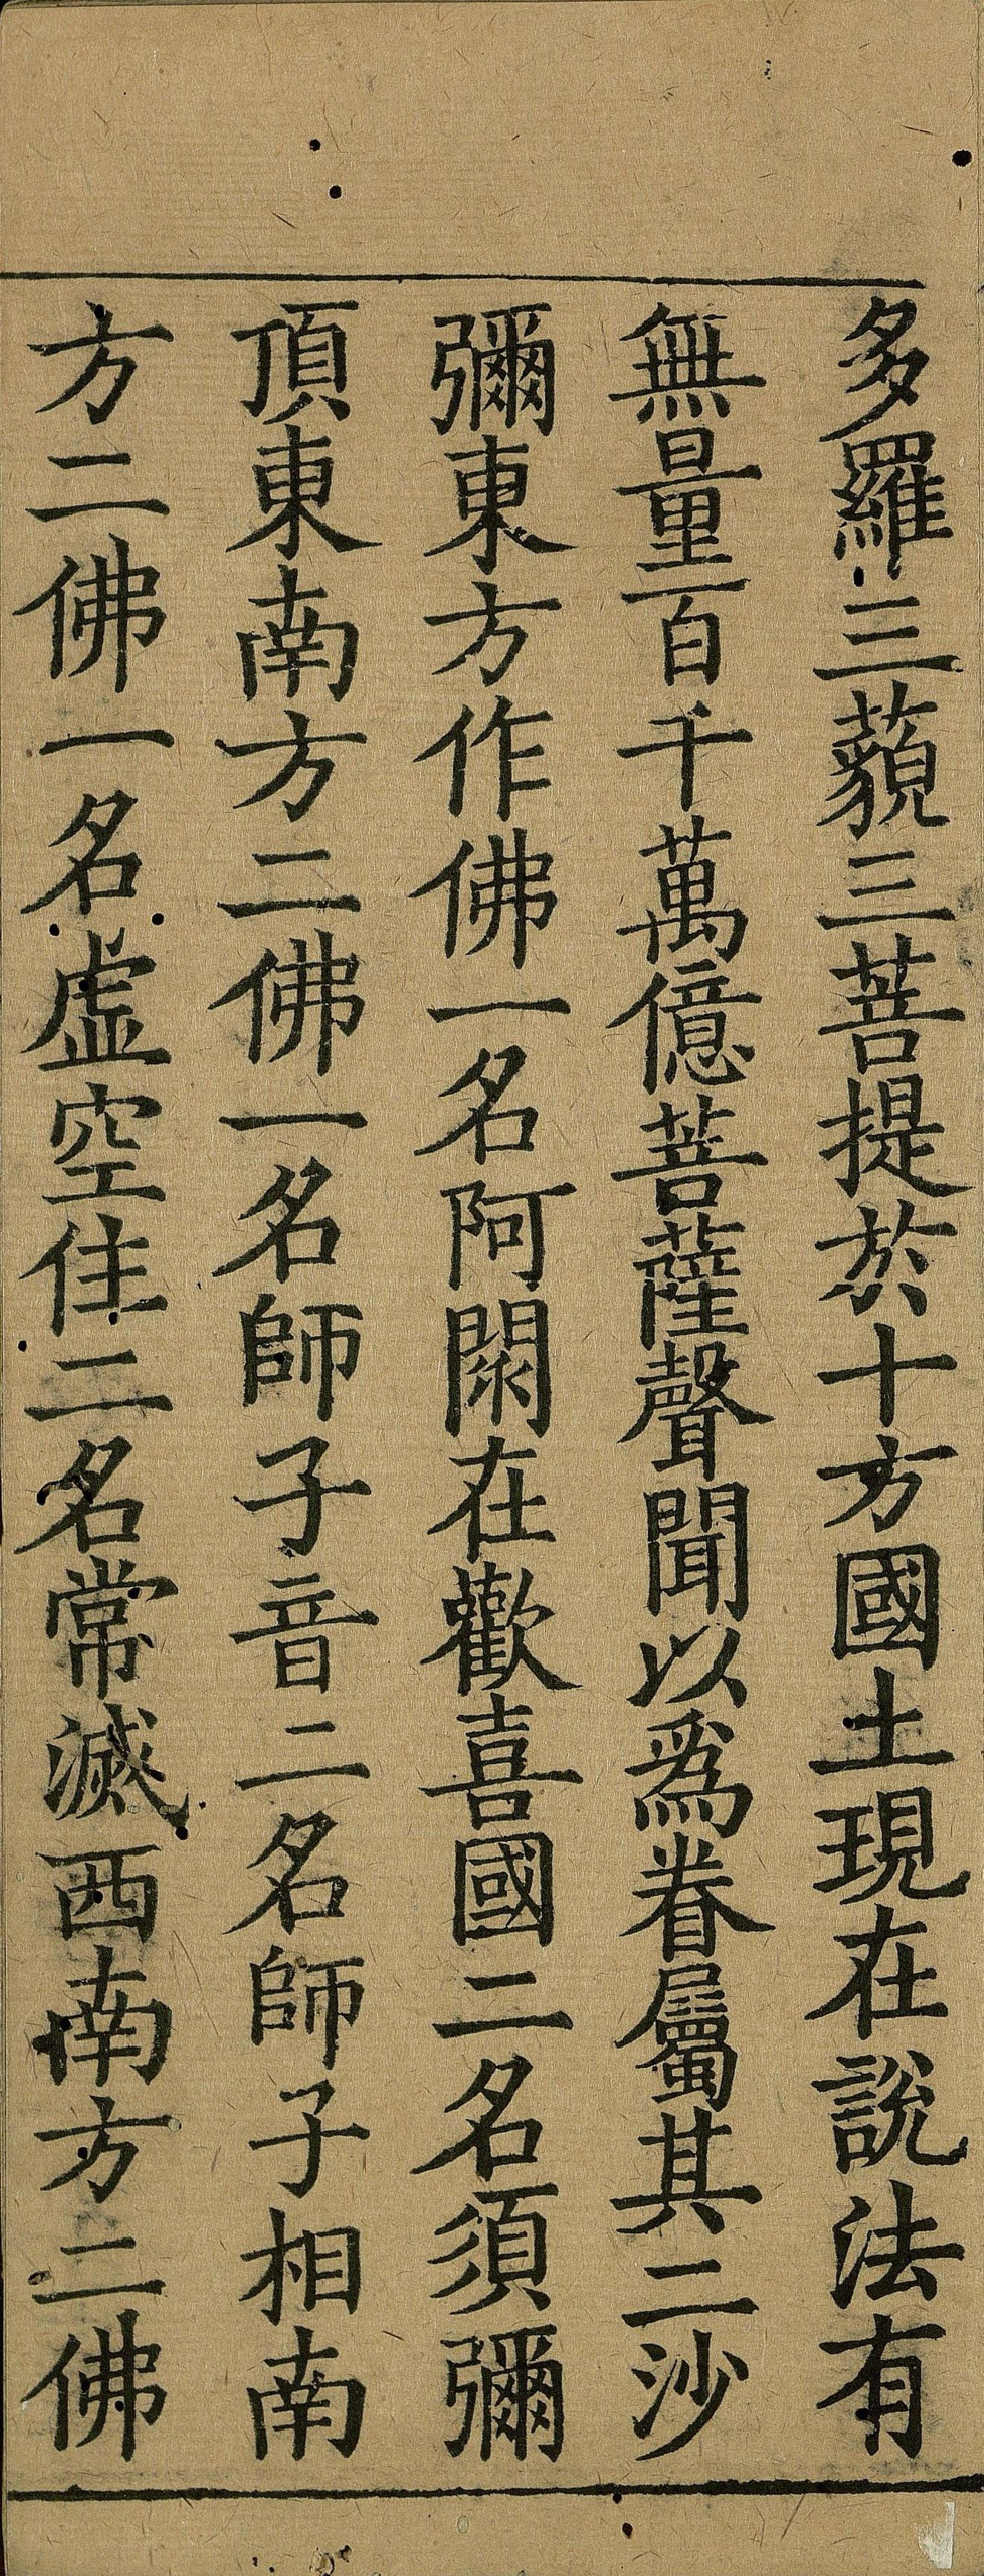 多羅三藐三菩提於十方國土現在說法有
無量百千萬億菩薩聲聞以爲眷屬其二沙
彌東方作佛一名阿閦在歡喜國二名須彌
頂東南方二佛一名師子音二名師子相南
方二佛一名虛空住二名常滅西南方二佛